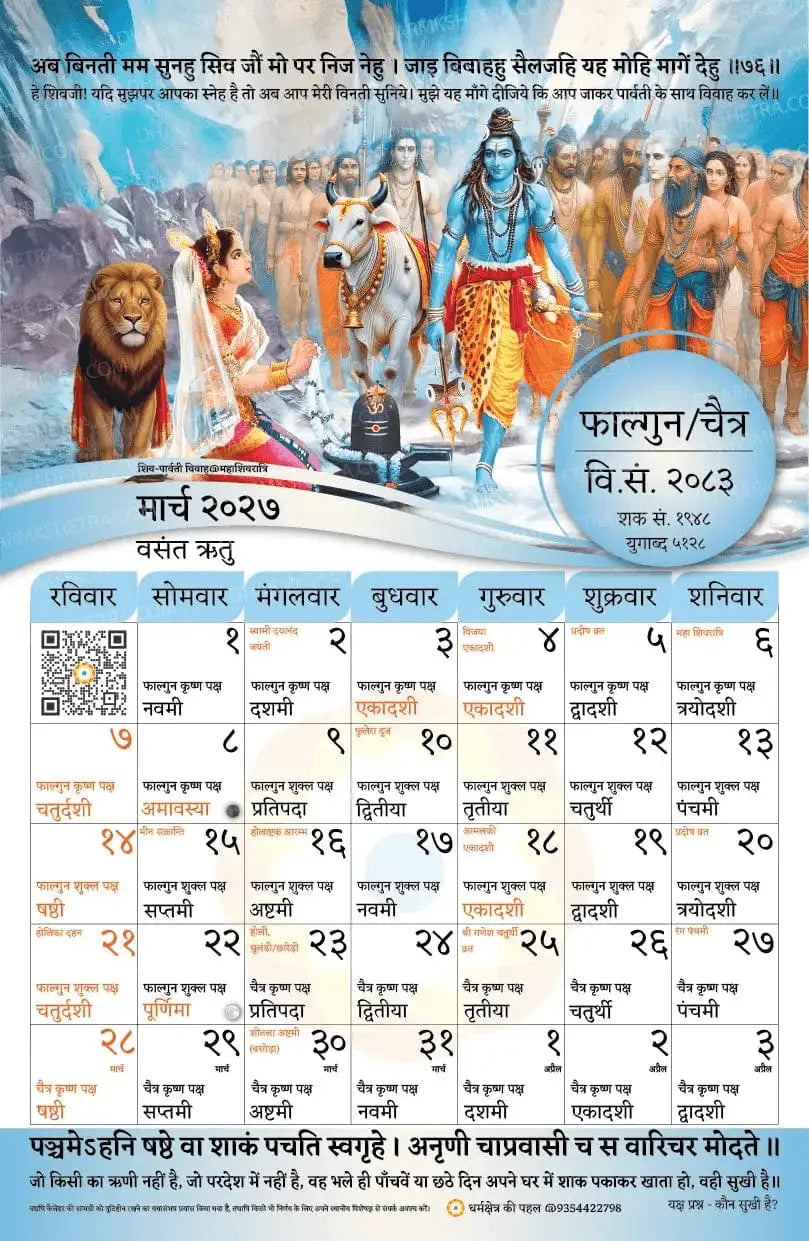 अब बिनती मम सुनहु सिव जौं मो पर निज नेहु । जाइ बिबाहहु सैलजहि यह मोहि मागें देहु ॥७६॥
हे शिवजी! यदि मुझपर आपका स्नेह है तो अब आप मेरी विनती सुनिये। मुझे यह माँगे दीजिये कि आप जाकर पार्वती के साथ विवाह कर लें॥
फाल्गुन/चैत्र
वि.सं. २०८३
शक सं. १९४८
युगाब्द ५१२८
शिव-पार्वती विवाह@महाशिवरात्रि
मार्च २०२७
वसंत ऋतु
रविवार सोमवार मंगलवार बुधवार गुरुवार शुक्रवार शनिवार
१ स्वामी दयानंद जयंती २ ३ विजया एकादशी ४ प्रदोष व्रत ५ महा शिवरात्रि ६
फाल्गुन कृष्ण पक्ष फाल्गुन कृष्ण पक्ष फाल्गुन कृष्ण पक्ष फाल्गुन कृष्ण पक्ष फाल्गुन कृष्ण पक्ष फाल्गुन कृष्ण पक्ष
नवमी दशमी एकादशी एकादशी द्वादशी त्रयोदशी
७ ८ ९ फुलेरा दूज १० ११ १२ १३
फाल्गुन कृष्ण पक्ष फाल्गुन कृष्ण पक्ष फाल्गुन शुक्ल पक्ष फाल्गुन शुक्ल पक्ष फाल्गुन शुक्ल पक्ष फाल्गुन शुक्ल पक्ष फाल्गुन शुक्ल पक्ष
चतुर्दशी अमावस्या प्रतिपदा द्वितीया तृतीया चतुर्थी पंचमी
१४ मीन संक्रान्ति १५ होलाष्टक आरम्भ १६ १७ आमलकी एकादशी १८ १९ प्रदोष व्रत २०
फाल्गुन शुक्ल पक्ष फाल्गुन शुक्ल पक्ष फाल्गुन शुक्ल पक्ष फाल्गुन शुक्ल पक्ष फाल्गुन शुक्ल पक्ष फाल्गुन शुक्ल पक्ष फाल्गुन शुक्ल पक्ष
षष्ठी सप्तमी अष्टमी नवमी एकादशी द्वादशी त्रयोदशी
होलिका दहन २१ २२ होली, धुलंडी/छारेंडी २३ २४ श्री गणेश चतुर्थी व्रत २५ २६ रंग पंचमी २७
फाल्गुन शुक्ल पक्ष फाल्गुन शुक्ल पक्ष चैत्र कृष्ण पक्ष चैत्र कृष्ण पक्ष चैत्र कृष्ण पक्ष चैत्र कृष्ण पक्ष चैत्र कृष्ण पक्ष
चतुर्दशी पूर्णिमा प्रतिपदा द्वितीया तृतीया चतुर्थी पंचमी
२८ मार्च २९ मार्च शीतला अष्टमी (बसोड़ा) ३० मार्च ३१ मार्च १ अप्रैल २ अप्रैल ३ अप्रैल
चैत्र कृष्ण पक्ष चैत्र कृष्ण पक्ष चैत्र कृष्ण पक्ष चैत्र कृष्ण पक्ष चैत्र कृष्ण पक्ष चैत्र कृष्ण पक्ष चैत्र कृष्ण पक्ष
षष्ठी सप्तमी अष्टमी नवमी दशमी एकादशी द्वादशी
पञ्चमेऽहनि षष्ठे वा शाकं पचति स्वगृहे । अनृणी चाप्रवासी च स वारिचर मोदते ॥
जो किसी का ऋणी नहीं है, जो परदेश में नहीं है, वह भले ही पाँचवें या छठे दिन अपने घर में शाक पकाकर खाता हो, वही सुखी है॥
यद्यपि कैलेंडर की सामग्री को त्रुटिहीन रखने का यथासंभव प्रयास किया गया है, तथापि किसी भी निर्णय के लिए अपने स्थानीय विशेषज्ञ से संपर्क अवश्य करें। धर्मक्षेत्र की पहल @9354422798 यक्ष प्रश्न - कौन सुखी है?